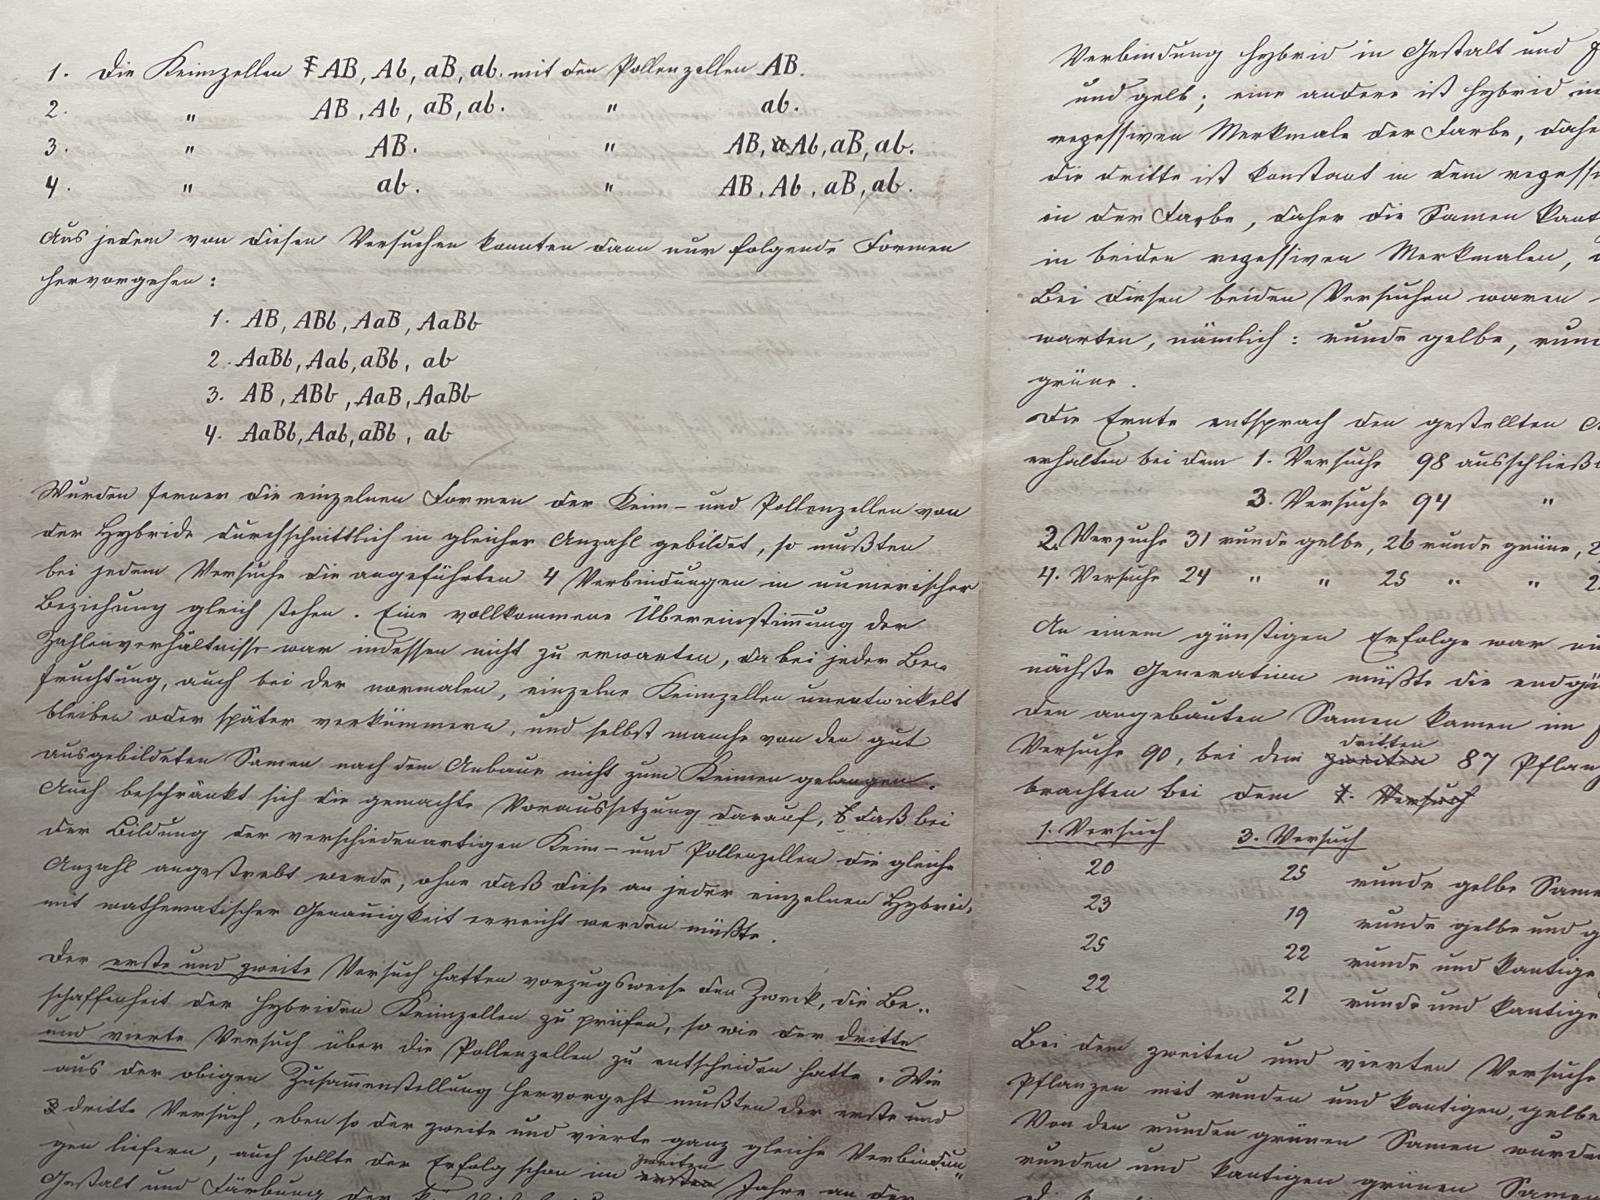 1. Die Keimzellen AB, Ab, aB, ab. mit den Pollenzellen AB.
2. " AB, Ab, aB, ab. " ab.
3. " AB. " AB, Ab, aB, ab.
4. " ab. " AB, Ab, aB, ab.
Aus jedem von diesen Versuchen konnten dann nur folgende Formen
hervorgehen:
1. AB, ABb, AaB, AaBb
2. AaBb, Aab, aBb, ab
3. AB, ABb, AaB, AaBb
4. AaBb, Aab, aBb, ab
Wurden ferner die einzelnen Formen der Keim- und Pollenzellen von
der Hybride durchschnittlich in gleicher Anzahl gebildet, so mußten
bei jedem Versuche die angeführten 4 Verbindungen in numerischer
Beziehung gleich stehen. Eine vollkommene Übereinstimmung der
Zahlenverhältnisse war indessen nicht zu erwarten, da bei jeder Be-
fruchtung, auch bei der normalen, einzelne Keimzellen unentwickelt
bleiben oder später verkümmern, und selbst manche von den gut
ausgebildeten Samen nach dem Anbaue nicht zum Keimen gelangen.
Auch beschränkt sich die gemachte Voraussetzung darauf, daß bei
der Bildung der verschiedenartigen Keim- und Pollenzellen die gleiche
Anzahl angestrebt werde, ohne daß diese an jeder einzelnen Hybride
mit mathematischer Genauigkeit erreicht werden müßte.
Der erste und zweite Versuch hatten vorzugsweise den Zweck, die Be-
schaffenheit der hybriden Keimzellen zu prüfen, so wie der dritte
und vierte Versuch über die Pollenzellen zu entscheiden hatte. Wie
aus der obigen Zusammenstellung hervorgeht mußten der erste und
dritte Versuch, eben so der zweite und vierte ganz gleiche Verbindun-
gen liefern, auch sollte der Erfolg schon im zweiten Jahre an der
Gestalt und Färbung der
Verbindung hybrid in Gestalt und
und gelb; eine andere ist hybrid in
rezessiven Merkmale der Farbe, dahe
die dritte ist konstant in dem rezessi
in der Farbe, daher die Samen kant
in beiden rezessiven Merkmalen, d
Bei diesen beiden Versuchen waren
warten, nämlich: runde gelbe, run
grüne.
Die Ernte entsprach den gestellten
erhalten bei dem 1. Versuche 98 ausschließ
3. Versuche 94 "
2. Versuche 31 runde gelbe, 26 runde grüne, 2
4. Versuche 24 " " 25 " " 2
An einem günstigen Erfolge war nu
nächste Generation müßte die endgü
den angebauten Samen kamen im
Versuche 90, bei dem dritten 87 Pflan
brachten bei dem 1. Versuch
1. Versuch 3. Versuch
20 25 runde gelbe Same
23 19 runde gelbe und g
25 22 runde und kantige
22 21 runde und kantige
Bei dem zweiten und vierten Versuche
Pflanzen mit runden und kantigen, gelbe
Von den runden grünen Samen wurde
runden und kantigen grünen Samen